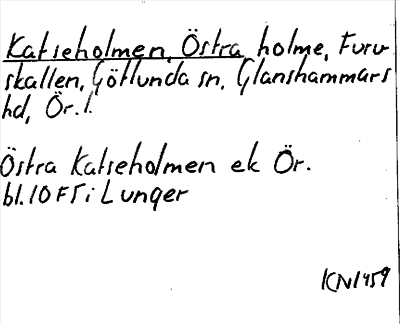 Katseholmen, Östra holme, Furu-
skallen, Götlunda sn, Glanshammars
hd, Ör. l.
Östra Katseholmen ek Ör.
bl. 10 F5 i Lunger
KN 1959